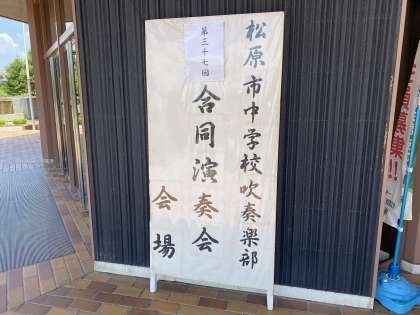 松原市中学校吹奏楽部
第三十七回
合同演奏会
会場
募集!!